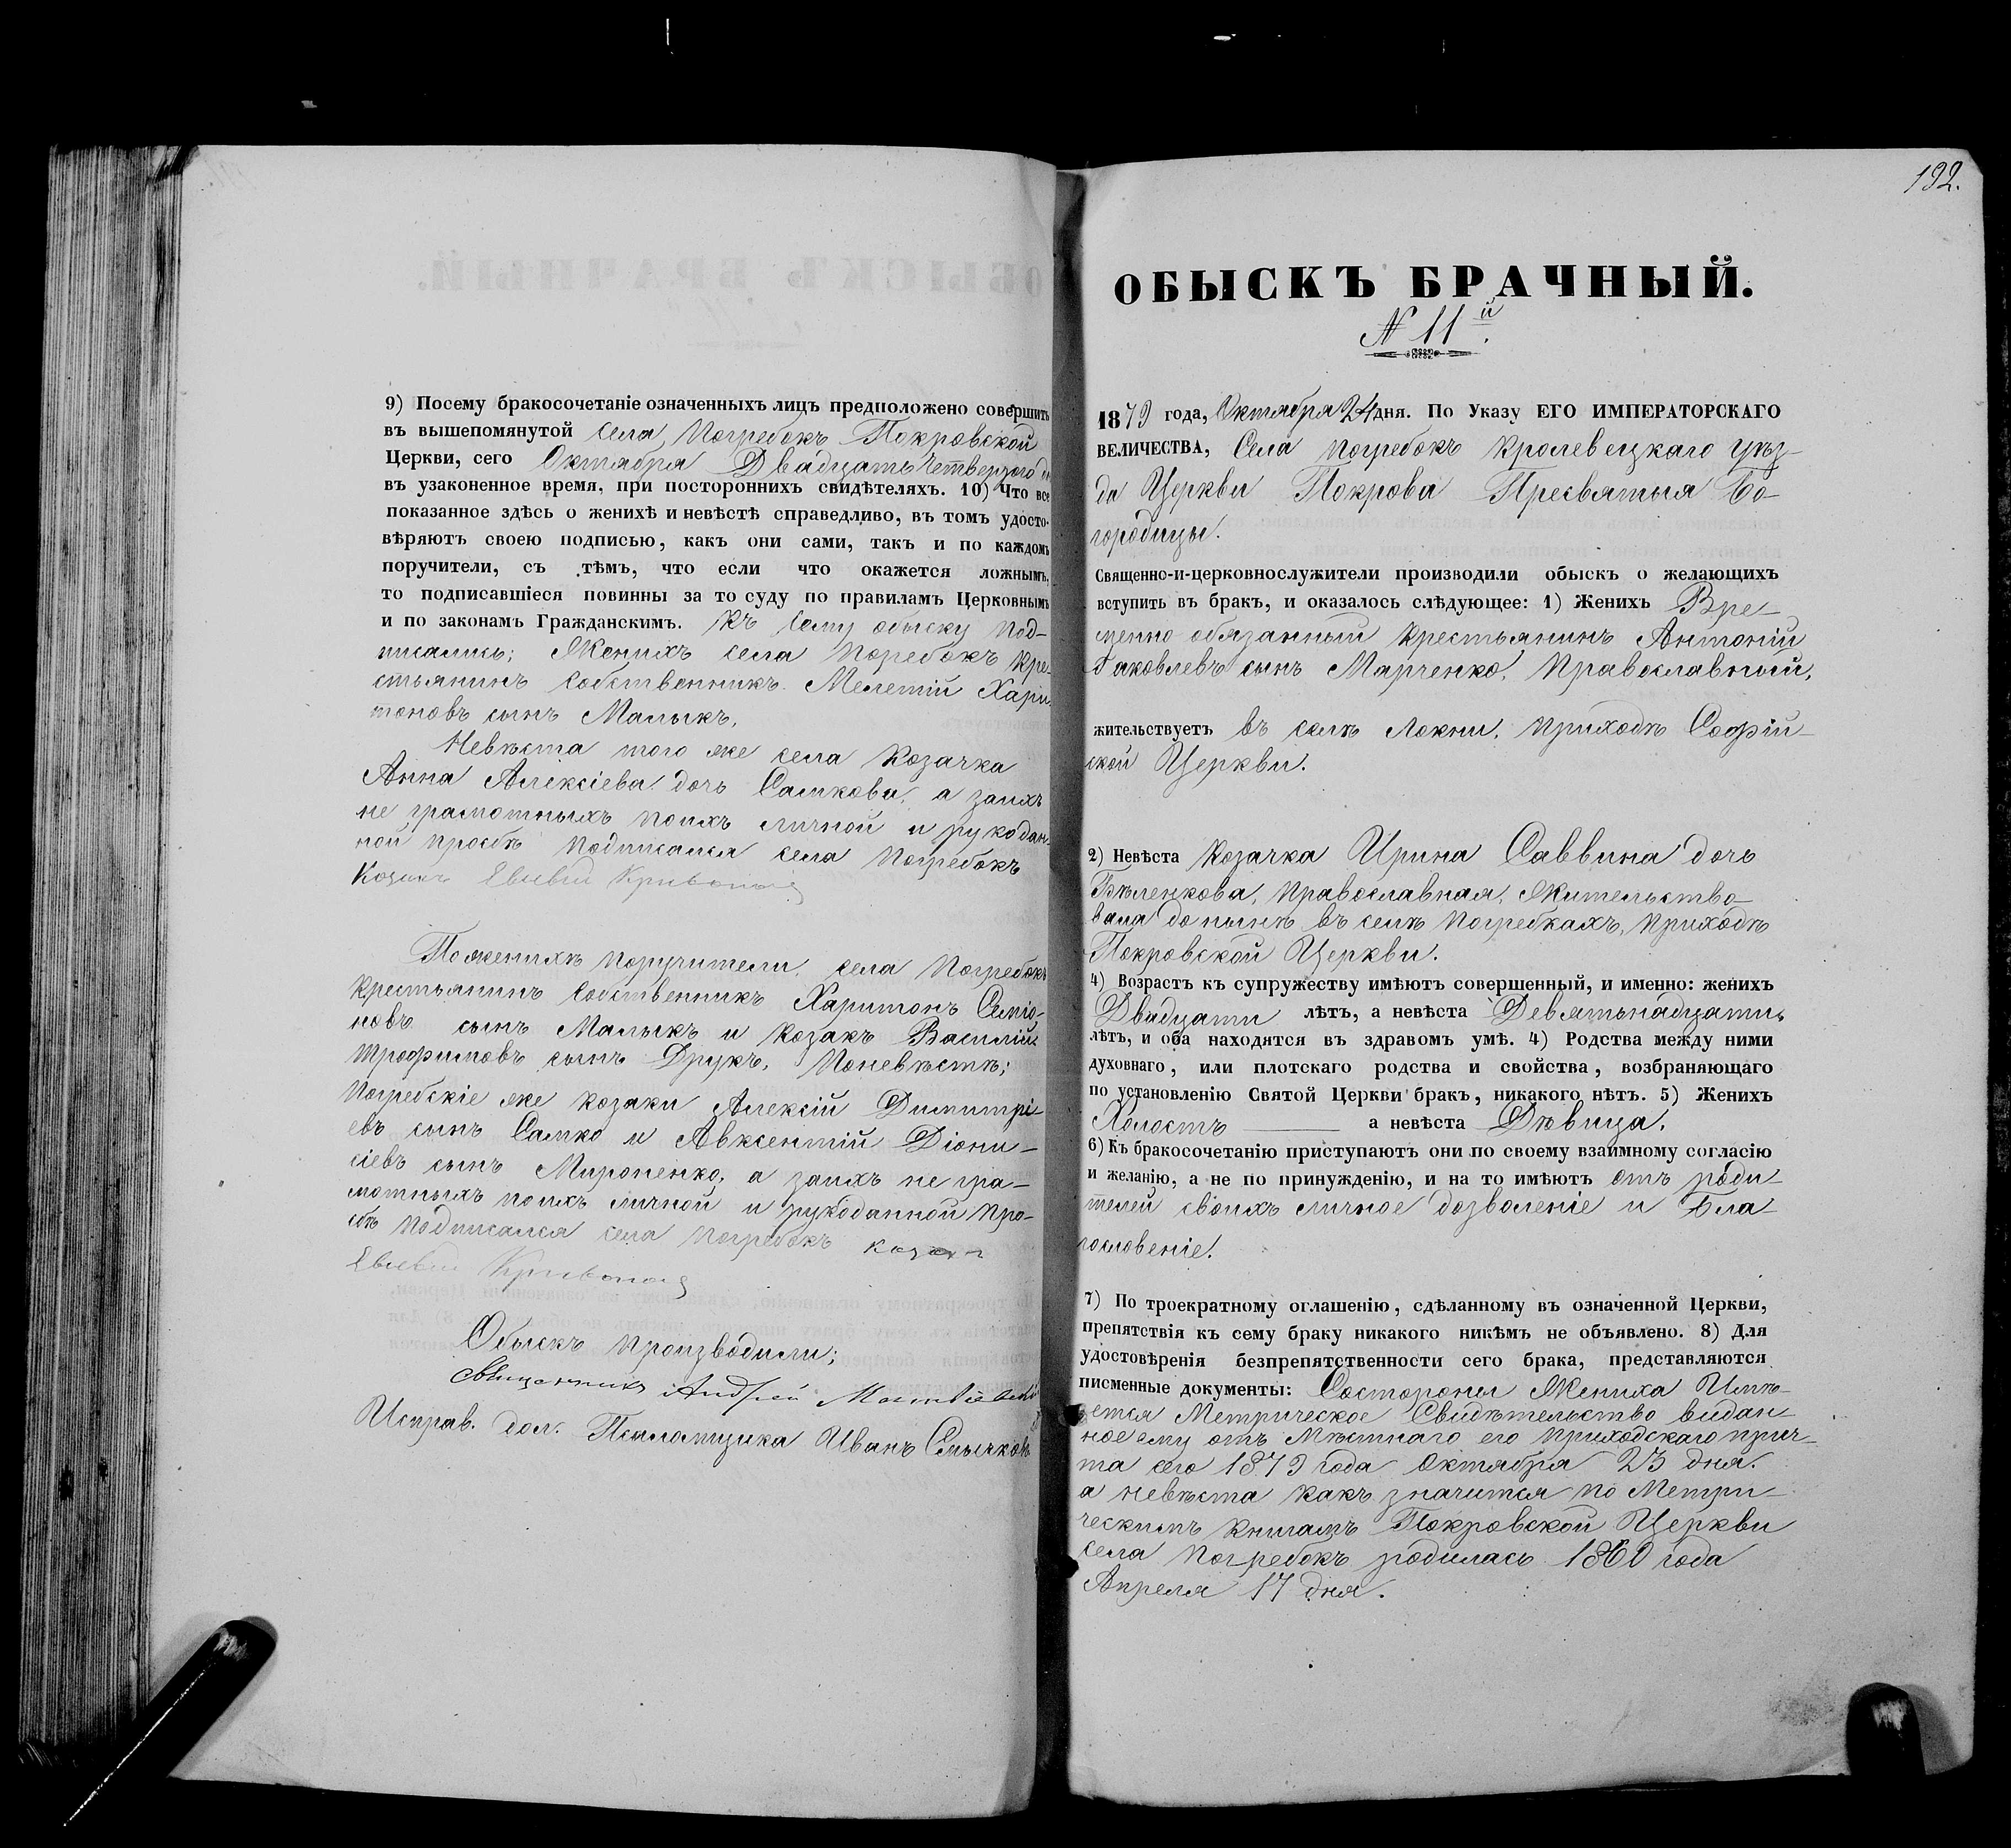 9) Посему бракосочетаніе означенныхъ лицъ предположено совершить
въ вышепомянутой села, Погребокъ Покровской
Церкви, сего Октября Двадцать Четвертого
въ узаконенное время, при постороннихъ свидѣтеляхъ. 10) Что все
показанное здѣсь о женихѣ и невѣстѣ справедливо, въ томъ удосто-
вѣряютъ своею подписью, какъ они сами, такъ и по каждомъ
поручители, съ тѣмъ, что если что окажется ложнымъ,
то подписавшіеся повинны за то суду по правиламъ Церковнымъ
и по законамъ Гражданскимъ. Къ сему обыску под-
писались; Женихъ села Погребокъ кре-
стьянинъ собственникъ Мелетій Хари-
тоновъ сынъ Малыкъ,
Невѣста того же села козачка
Анна Алексіева дочь Самкова, а заихъ
не грамотныхъ поихъ личной и рукодан-
ной прозбѣ подписался села Погребокъ
Козакъ Евсевій
Поженихѣ поручители, села Погребокъ
крестьянинъ собственникъ Харитонъ Семіо-
новъ сынъ Малыкъ и козакъ Василій
Трофимовъ сынъ Друкъ, Поневѣстѣ;
Погребскіе же козаки Алексій Димитрі-
евъ сынъ Самко и Авксентій Діони-
сіевъ сынъ Мироненко, а заихъ не гра-
мотныхъ поихъ личной и рукоданной про-
сбѣ подписался села Погребокъ козакъ
Евсевій
Обыскъ производили;
Священникъ Андрей
Исправ. дол. Псаломщика Иванъ Смычковъ
192.
ОБЫСКЪ БРАЧНЫЙ.
N 11й.
1879 года, Октября 24 дня. По Указу ЕГО ИМПЕРАТОРСКАГО
ВЕЛИЧЕСТВА, Села Погребокъ Кролевецкаго уѣз-
да Церкви Покрова Пресвятыя Бо-
городицы.
Священно-и-церковнослужители производили обыскъ о желающихъ
вступить въ бракъ, и оказалось слѣдующее: 1) Женихъ Вре-
менно обязанный крестьянинъ Антоній
Іаковлевъ сынъ Марченко, Православный,
жительствуетъ въ селѣ Локни, приходѣ Софій-
ской Церкви.
2) Невѣста козачка Ирина Саввина дочь
Бѣленкова, православная, жительство-
вала до нынѣ въ селѣ Погребкахъ, приходѣ
Покровской Церкви.
4) Возрастъ къ супружеству имѣютъ совершенный, и именно: женихъ
Двадцати лѣтъ, а невѣста Девятьнадцати
лѣтъ, и оба находятся въ здравомъ умѣ. 4) Родства между ними
духовнаго, или плотскаго родства и свойства, возбраняющаго
по установленію Святой Церкви бракъ, никакого нѣтъ. 5) Женихъ
Холостъ — а невѣста Дѣвица.
6) Къ бракосочетанію приступаютъ они по своему взаимному согласію
и желанію, а не по принужденію, и на то имѣютъ отъ роди-
телей своихъ личное дозволеніе и Бла-
гословеніе.
7) По троекратному оглашенію, сдѣланному въ означенной Церкви,
препятствія къ сему браку никакого никѣмъ не объявлено. 8) Для
удостовѣренія безпрепятственности сего брака, представляются
писменные документы: Состороны Жениха Имѣ-
ется Метрическое Свидѣтельство видан-
ное ему отъ Мѣстнаго его приходскаго прич-
та сего 1879 года Октября 23 дня.
а невѣста какъ значится по Метри-
ческимъ книгамъ Покровской Церкви
села Погребокъ родилась 1860 года
Апреля 17 дня.